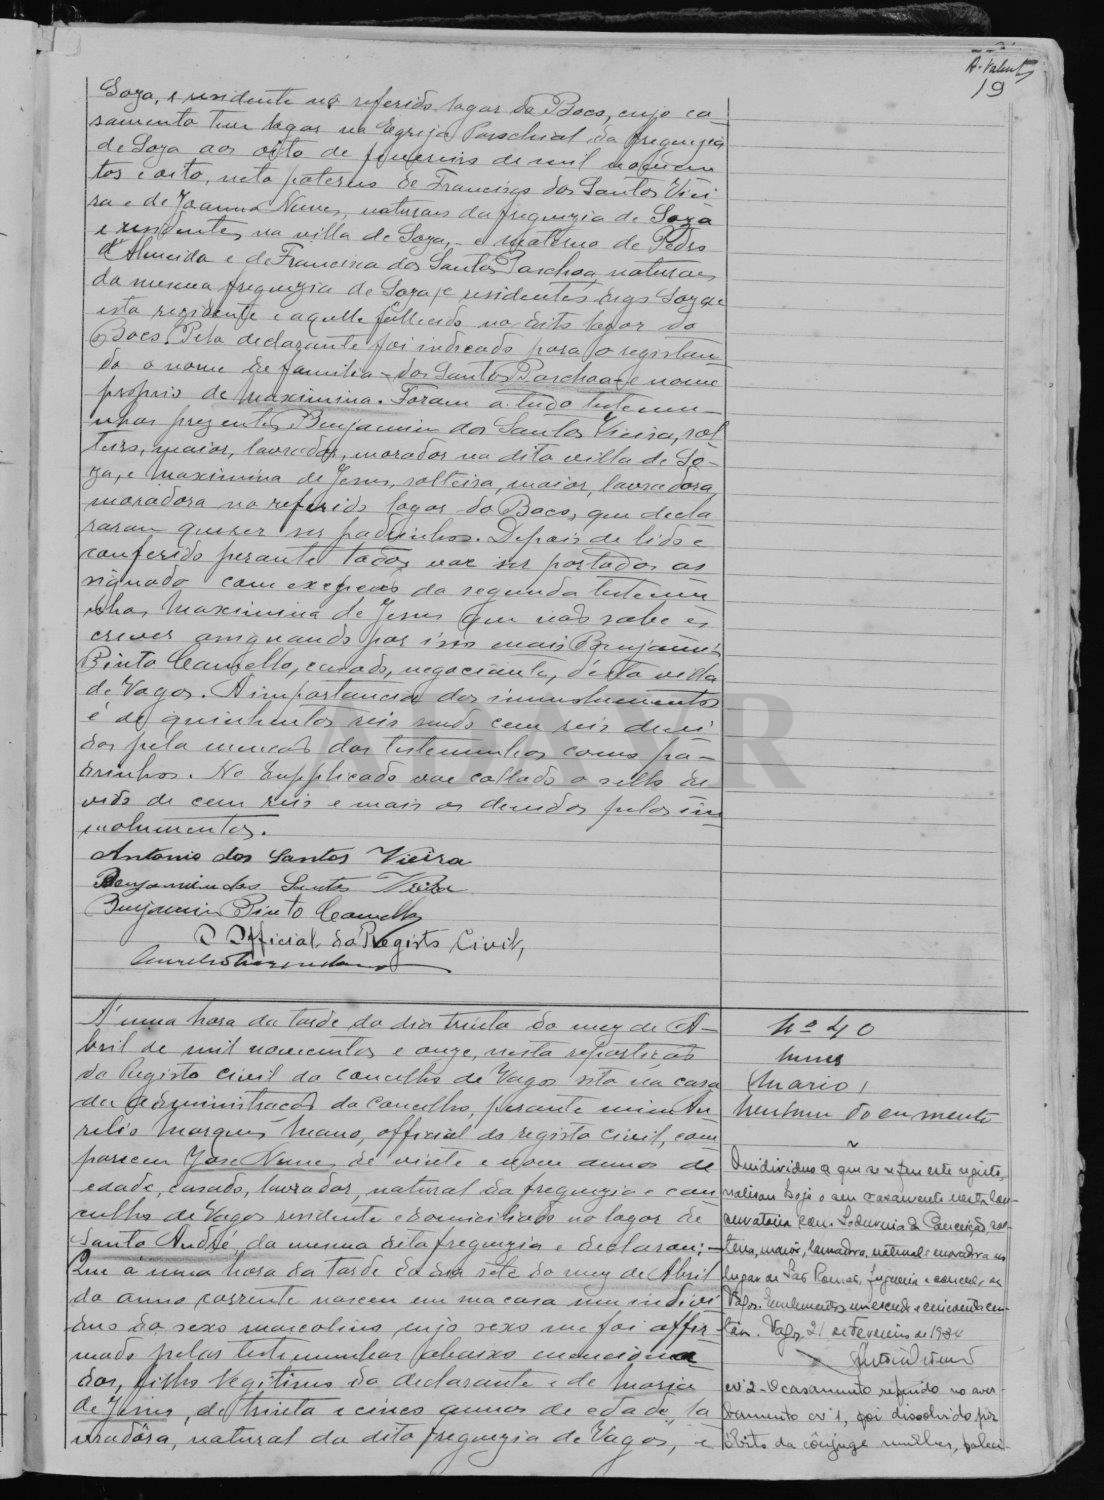 A. Valent
19
Soza, e residente no referido logar do Boco, cujo ca-
samento teve logar na Egreja Parochial da freguezia
de Soza aos oito de fevereiro de mil novecen
tos e oito, neto paterno de Francisco dos Santos Viei
ra e de Joanna Nunes, naturaes da freguezia de Soza
e residentes na villa de Soza, e materno de Pedro
d'Almeida e de Francisca dos Santos Paschoa, naturaes
da mesma freguezia de Soza e residentes
esta residente e aquelle fallecido no dito logar do
Boco. Pelo declarante foi indicado para o registan
do o nome de familia - dos Santos Paschoa - e nome
proprio de Maximina. Foram a tudo testemu-
nhas prezentes Benjamim dos Santos Vieira, sol
teiro, maior, lavrador, morador na dita villa de So-
za, e Maximina de Jesus, solteira, maior, lavradora,
moradora no referido logar do Boco, que decla
raram querer ser padrinhos. Depois de lido e
conferido perante todos vae ser por todos as
signado com excepção da segunda testemu
nha Maximina de Jesus que não sabe es
crever assignando por isso mais Benjamim
Pinto Camello, casado, negociante, d'esta villa
de Vagos. A importancia dos immolumentos
é de quinhentos reis sendo cem reis devi
dos pela menção das testemunhas como pa-
drinhos. No supplicado vae collado o sello de
vido de cem reis e mais os devidos pelos im
molumentos.
Antonio dos Santos Vieira
Benjamim dos Santos Vieira
Benjamim Pinto Camello
O Official do Registo Civil,
Á uma hora da tarde do dia trinta do mez de A-
bril de mil novecentos e onze, nesta repartição
do Registo Civil do concelho de Vagos sita na casa
da administração do concelho, perante mim Au
relio Marques Mano, official do registo civil, com
pareceu José Nunes de vinte e nove annos de
edade, casado, lavrador, natural da freguezia e con
celho de Vagos residente e domiciliado no logar de
Santo André, da mesma dita freguezia e declarou: -
Que a uma hora da tarde do dia sete do mez de Abril
do anno corrente nasceu em sua casa um indivi
duo do sexo masculino cujo sexo me foi affir
mado pelas testemunhas abaixo menciona
das, filho legitimo do declarante e de Maria
de Jesus, de trinta e cinco annos de edade, la
vradôra, natural da dita freguezia de Vagos, e
Nº 40
Nunes
Mario
Nenhum documento
O individuo a que se refere este registo,
realisou hoje o seu casamento nesta Con-
servatoria com Ledovina da Conceição, sol-
teira, maior, lavradora, natural e moradora no
lugar de São Romão, freguesia e concelho de
Vagos. Emolumentos um escudo e cincoenta cen-
tavos. Vagos, 21 de Fevereiro de 1934
Nº 2 - O casamento referido no aver-
bamento nº 1, foi dissolvido por
óbito da cônjuge mulher, faleci-